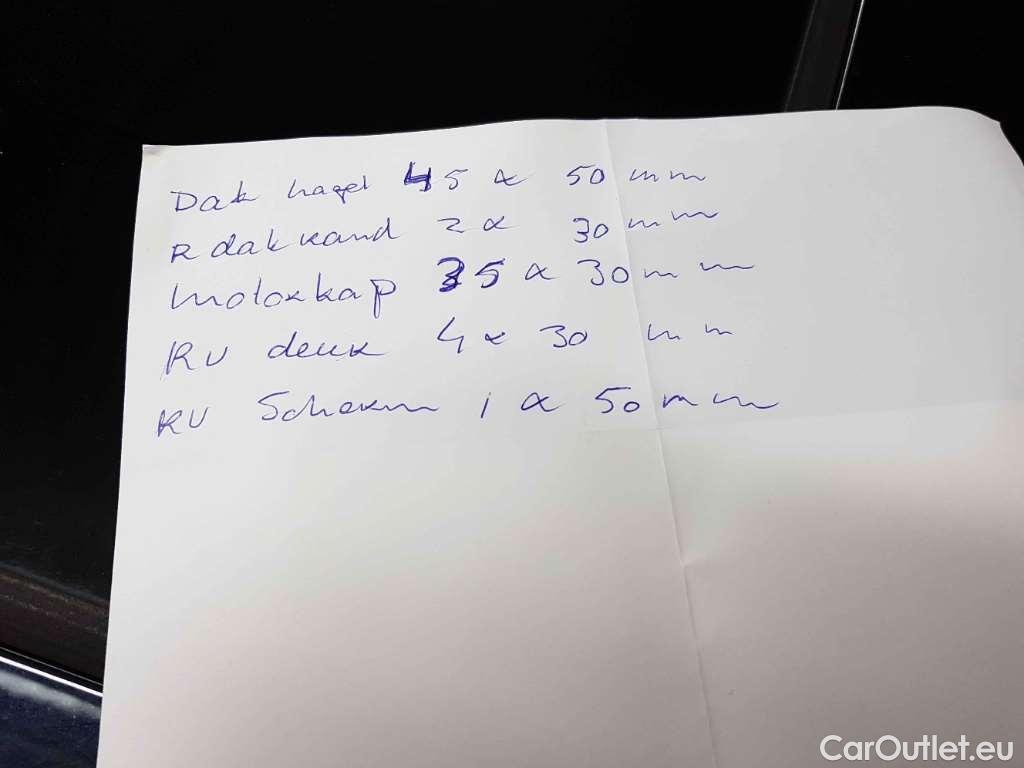 Dak hagel 45 x 50 mm
R dak rand 2 x 30 mm
Motorkap 35 x 30 mm
RV deur 4 x 30 mm
RV Scherm 1 x 50 mm
CarOutlet.eu